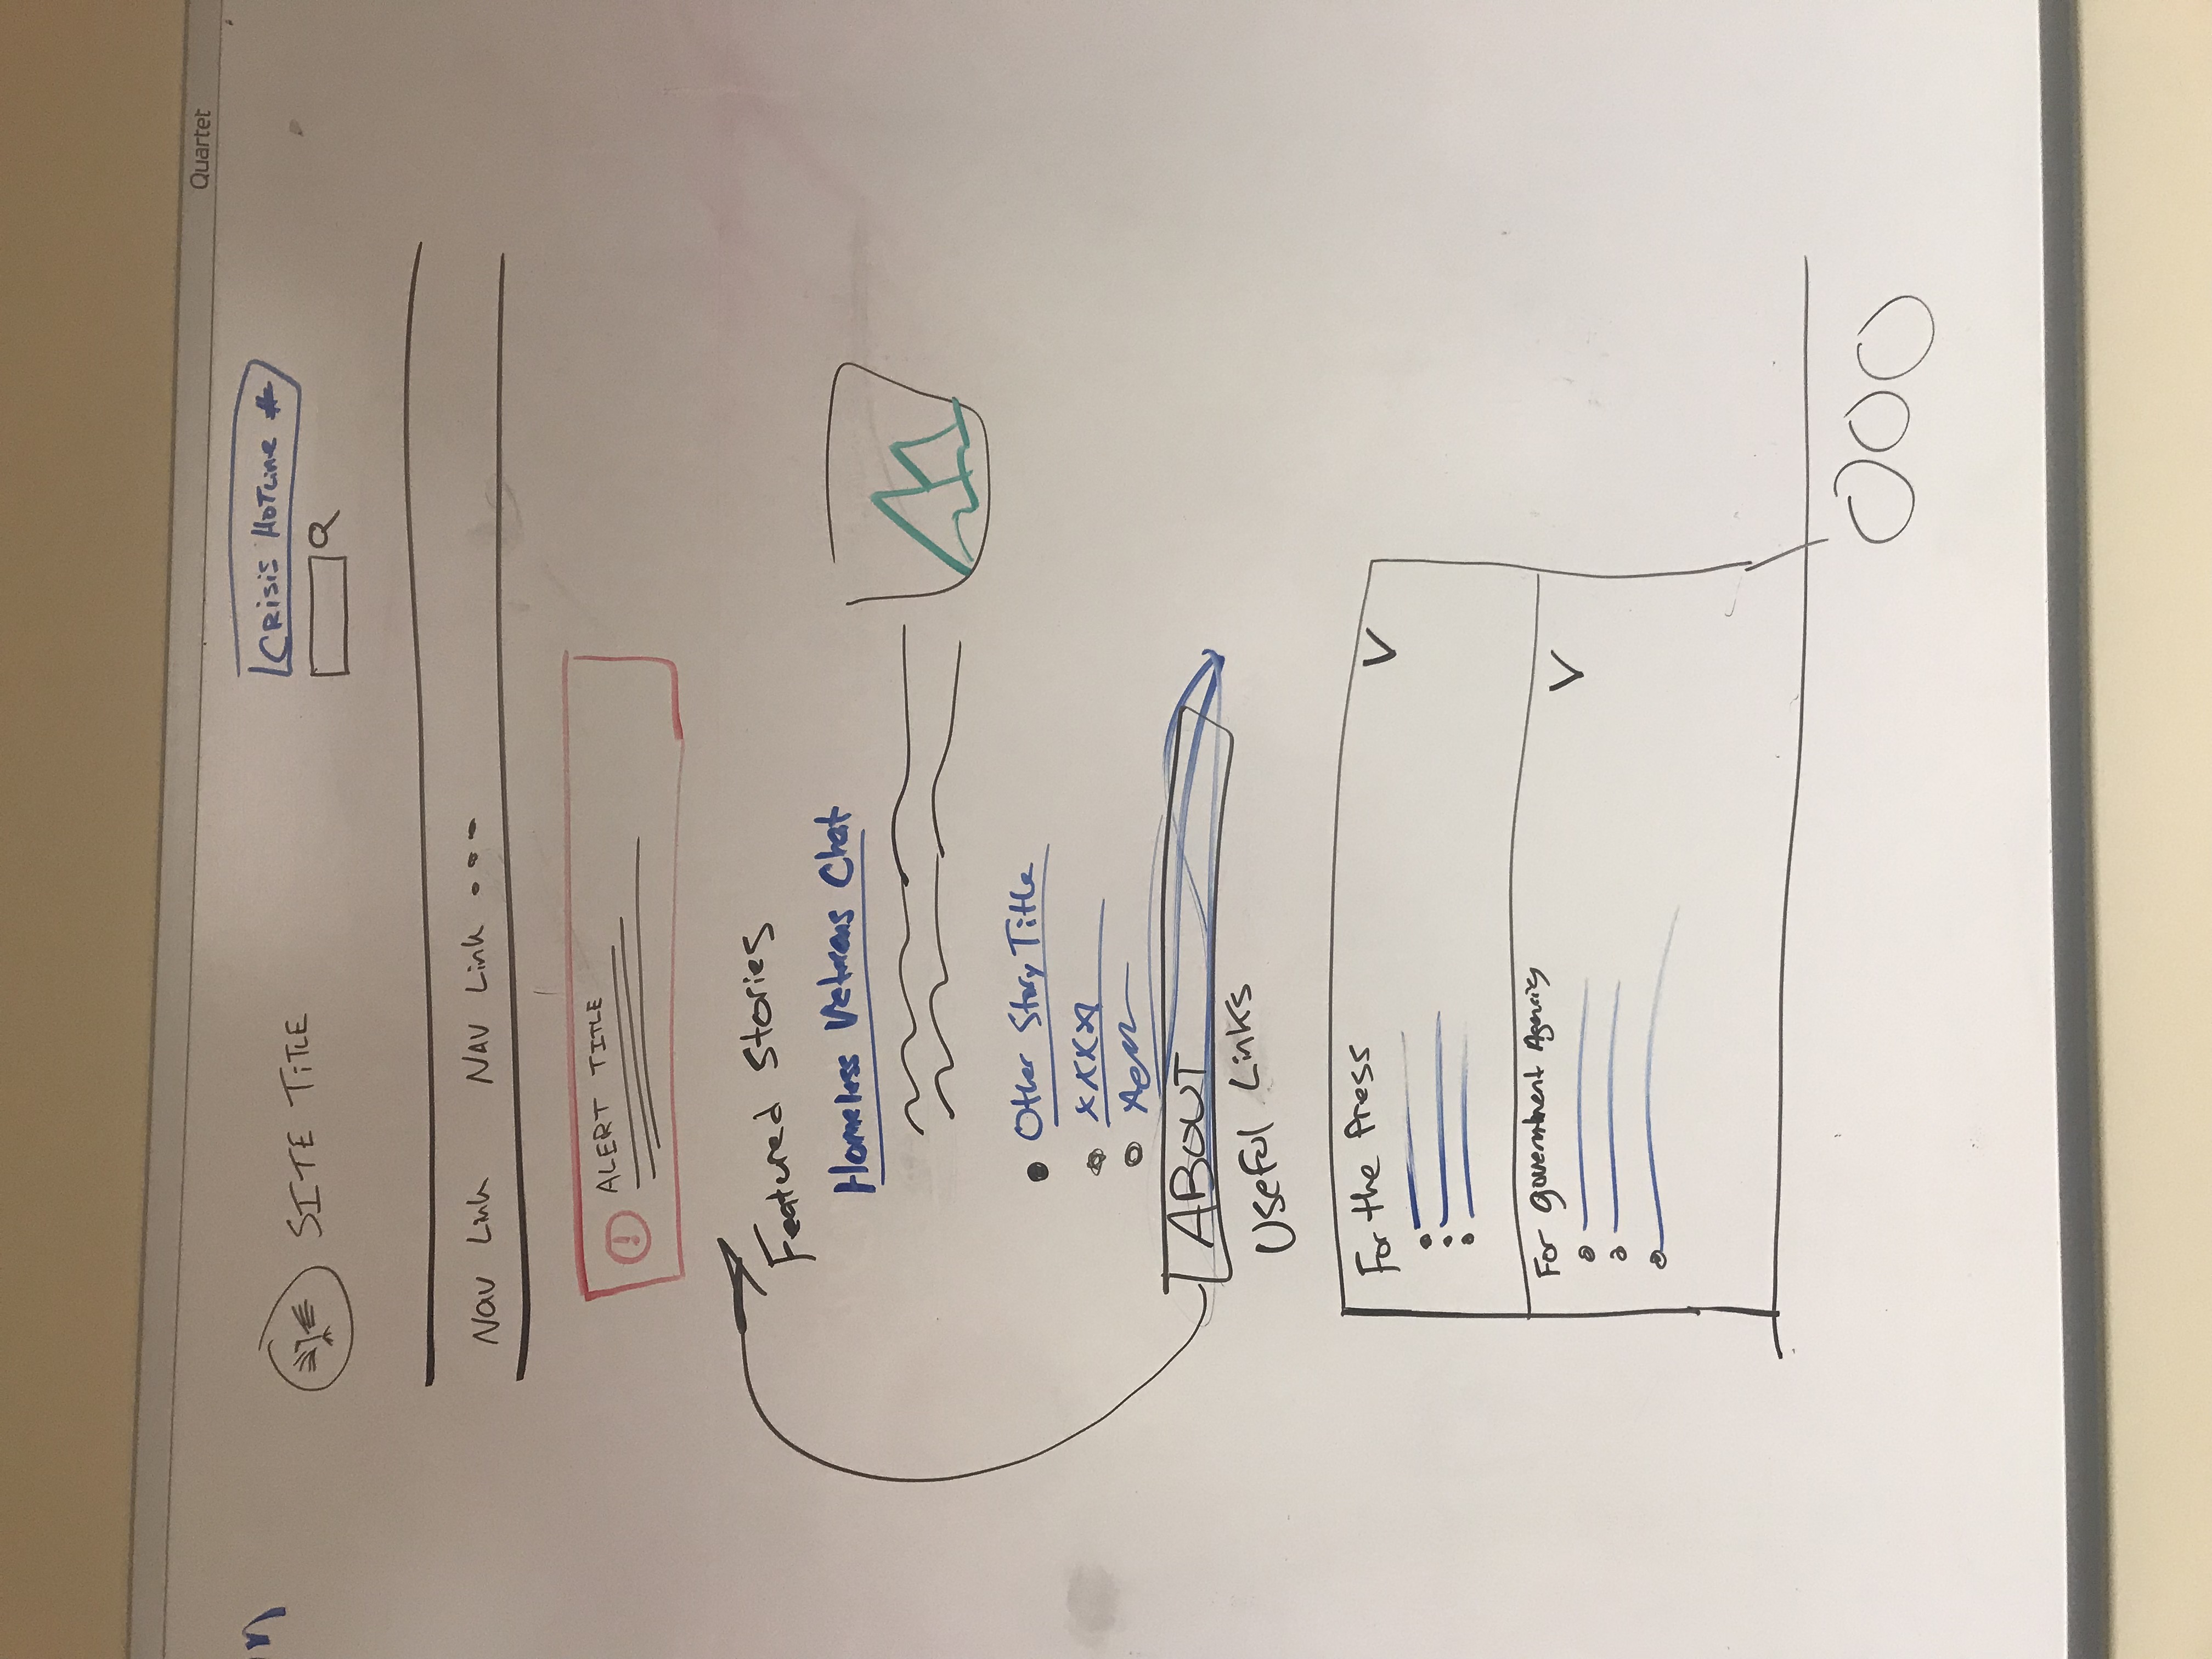 Quartet
CRISIS HOTLINE #
SITE TITLE
Nav Link NAV Link •••
! ALERT TITLE
Featured Stories
Homeless Veterans Chat
• Other Story Title
• XXXX
ABOUT
Useful Links
For the Press V
For government Agencies V